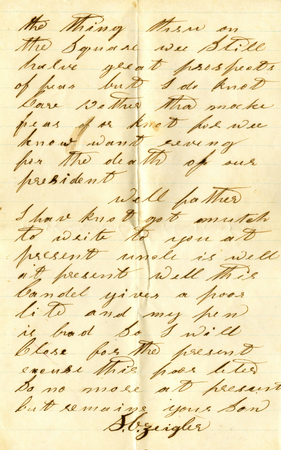 the thing thru on
the Square wee Still
halve great prospects
of peas but I do knot
Care Wether tha make
peas f or knot for wee
know want reveng
for the death of our
president
Well father
I have knot got mutch
to write to you at
present uncle is well
at present well this
Candel gives a poor
lite and my pen
is bad So I will
Close for the present
excuse this poor leter
So no more at present
but remains your Son
S. C. Zeigler